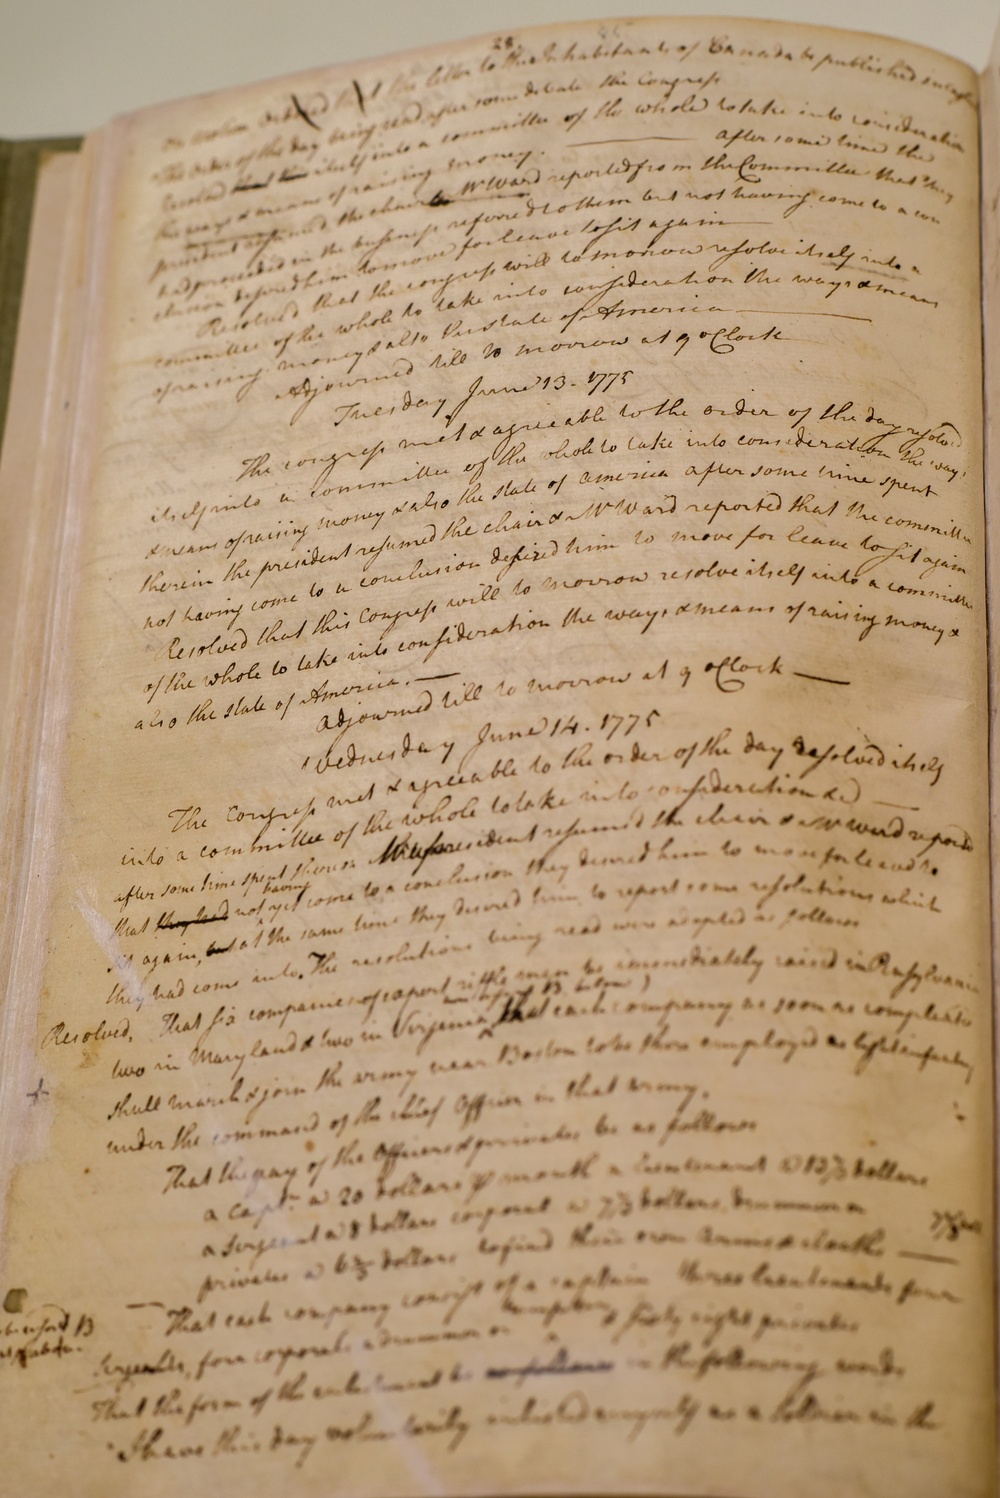 28
On motion Ordered that the letter to the Inhabitants of Canada be published
The order of the day being read after some debate the Congress
itself into a committee of the whole to take into consideration
the ways & means of raising money. — after some time the
president resumed the chair & Mr Ward reported from the Committee that they
had proceeded in the business referred to them but not having come to a con
clusion desired him to move for leave to sit again
Resolved that the congress will to morrow resolve itself into a
committee of the whole to take into consideration the ways & means
of raising money & also the state of America —
Adjourned till to morrow at 9 oClock
Tuesday June 13. 1775
The congress met & agreeable to the order of the day resolved
itself into a committee of the whole to take into consideration the ways
& means of raising money & also the state of america after some time spent
therein the president resumed the chair & Mr Ward reported that the committee
not having come to a conclusion desired him to move for leave to sit again
Resolved that this Congress will to morrow resolve itself into a committee
of the whole to take into consideration the ways & means of raising money &
also the state of America. —
Adjourned till to morrow at 9 oClock —
Wednesday June 14. 1775
The Congress met & agreeable to the order of the day resolved itself
into a committee of the whole to take into consideration &c —
after some time spent therein the president resumed the chair & Mr Ward reported
having
that they had not yet come to a conclusion they desired him to move for leave to
sit again, but at the same time they desired him to report some resolutions which
they had come into. The resolutions being read were adopted as follows
Resolved, That six companies of expert rifle men be immediately raised in Pensylvania
two in Maryland & two in Virginia, that each company as soon as compleated
shall march & join the army near Boston to be there employed as light infantry
under the command of the chief Officer in that army.
That the pay of the Officers & privates be as follows
a capt. a 20 dollars per month a lieutenant a 13⅓ dollars
a serjeant a 8 dollars corporal a 7⅓ dollars, drummer or 7⅓
privates a 6⅔ dollars to find their own arms & cloaths —
— That each company consist of a captain three lieutenants four
serjeants, four corporals a drummer or trumpeter & sixty eight privates
That the form of the enlistment be as follows in the following words
"I have this day voluntarily enlisted myself as a soldier in the